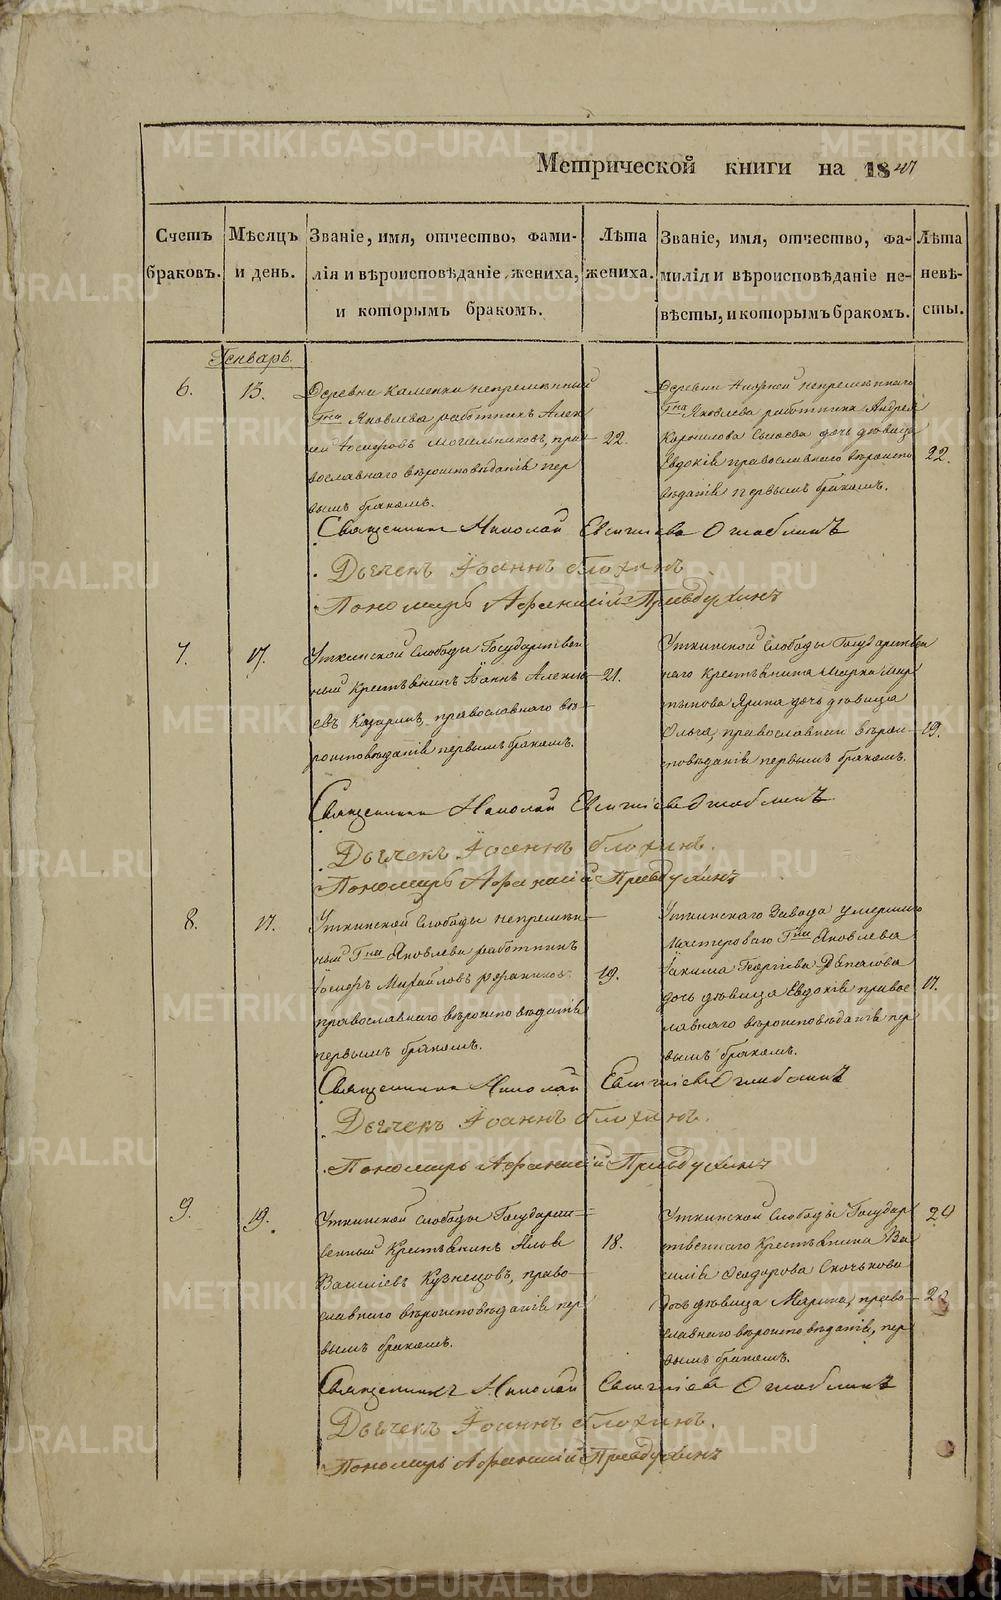 Метрической книги на 1847
Счетъ браковъ.
Мѣсяцъ и день.
Званіе, имя, отчество, фами-
лія и вѣроисповѣданіе жениха,
и которымъ бракомъ.
Лѣта
жениха.
Званіе, имя, отчество, фа-
милія и вѣроисповѣданіе не-
вѣсты, и которымъ бракомъ.
Лѣта
невѣ-
сты.
Генварь.
6. 15.
Деревни Каменки непремѣнный
Гна Яковлева работникъ Алек
сѣй Іосифовъ Могильниковъ, пра-
вославнаго вѣроисповѣданія пер
вымъ бракомъ.
22.
Деревни непремѣннаго
Гна Яковлева работника Андрея
Корнилова дочь дѣвица
Евдокія православнаго вѣроиспо
вѣданія первымъ бракомъ.
22.
Священникъ Николай Евгеніевъ Оглоблинъ
Дьячекъ Іоаннъ Блохинъ
Пономарь Афанасій Правдухинъ
7. 17.
Уткинской Слободы Государствен
ный Крестьянинъ Іоаннъ Алексѣ
евъ Казаринъ, православнаго вѣ
роисповѣданія первымъ бракомъ.
21.
Уткинской Слободы Государствен
наго Крестьянина Марка Мар
тынова Ярина дочь дѣвица
Ольга, православнаго вѣрои-
сповѣданія первымъ бракомъ.
19.
Священникъ Николай Евгеніевъ Оглоблинъ
Дьячекъ Іоаннъ Блохинъ.
Пономарь Афанасій Правдухинъ
8. 17.
Уткинской Слободы непремѣн-
ный Гна Яковлева работникъ
Іосифъ Михайловъ
православнаго вѣроисповѣданія
первымъ бракомъ.
19.
Уткинскаго Завода умершаго
Мастероваго Гна Яковлева
Іакима Георгіева
дочь дѣвица Евдокія право
славнаго вѣроисповѣданія пер
вымъ бракомъ.
17.
Священникъ Николай Евгеніевъ Оглоблинъ
Дьячекъ Іоаннъ Блохинъ.
Пономарь Афанасій Правдухинъ
9. 19.
Уткинской Слободы Государст-
венный Крестьянинъ Іаковъ
Василіевъ Кузнецовъ, право-
славнаго вѣроисповѣданія пер
вымъ бракомъ.
18.
Уткинской Слободы Государ
ственнаго Крестьянина Ва
силія Феодорова
дочь дѣвица Марина, право-
славнаго вѣроисповѣданія, пер
вымъ бракомъ.
20
20
Священникъ Николай Евгеніевъ Оглоблинъ
Дьячекъ Іоаннъ Блохинъ.
Пономарь Афанасій Правдухинъ
METRIKI.GASO-URAL.RU